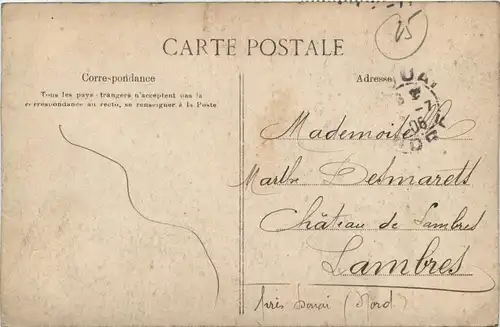 25
CARTE POSTALE
Correspondance
Tous les pays étrangers n'acceptent pas la
correspondance au recto, se renseigner à la Poste
Adresse
DOUAI
06
NORD
Mademoiselle
Marthe Desmarets
Château de Lambres
Lambres
près Douai (Nord)